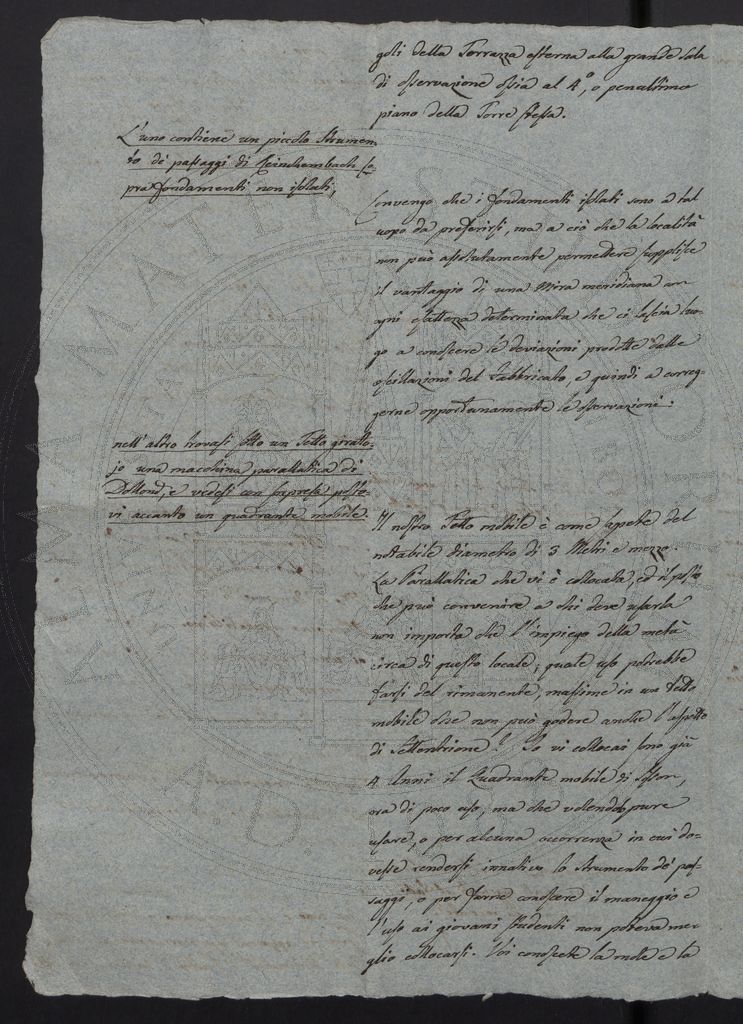 goli della Terrazza esterna alla grande Sala
di osservazione ossia al 4.º, o penultimo
piano della Torre stessa.
L'uno contiene un piccolo Strumen
to de' passaggi di Reinchembach so
pra fondamenti non isolati;
Convengo che i fondamenti isolati sono a tal
uopo da preferirsi, ma a ciò che la località
non può assolutamente permettere supplisce
il vantaggio di una Mira meridiana con
ogni esattezza determinata che ci lascia luo-
go a conoscere le deviazioni prodotte dalle
oscillazioni del Fabbricato, e quindi a correg-
gerne opportunamente le osservazioni.
nell'altro trovasi sotto un Tetto giratto-
jo una macchina parallatica di
Dollond, e vedesi con sorpresa posto-
vi accanto un quadrante mobile.
Il nostro Tetto mobile è come sapete del
notabile diametro di 3 Metri e mezzo.
La Parallatica che vi è collocata, ed il posto
che può convenire a chi deve usarla
non importa che l'impiego della metà
circa di questo locale; quale uso potrebbe
farsi del rimanente, massime in un Tetto
mobile che non può godere anche l'aspetto
di Settentrione? Io vi collocai sono già
4 Anni il Quadrante mobile di Sisson,
ora di poco uso, ma che volendosi pure
usare, o per alcuna occorrenza in cui do-
vesse rendersi innativo lo Strumento de' pas-
saggi, o per farne conoscere il maneggio e
l'uso ai giovani studenti non poteva me-
glio collocarsi. Voi conoscete la mole e la
ALMA MATER STUDIORUM
A.D.